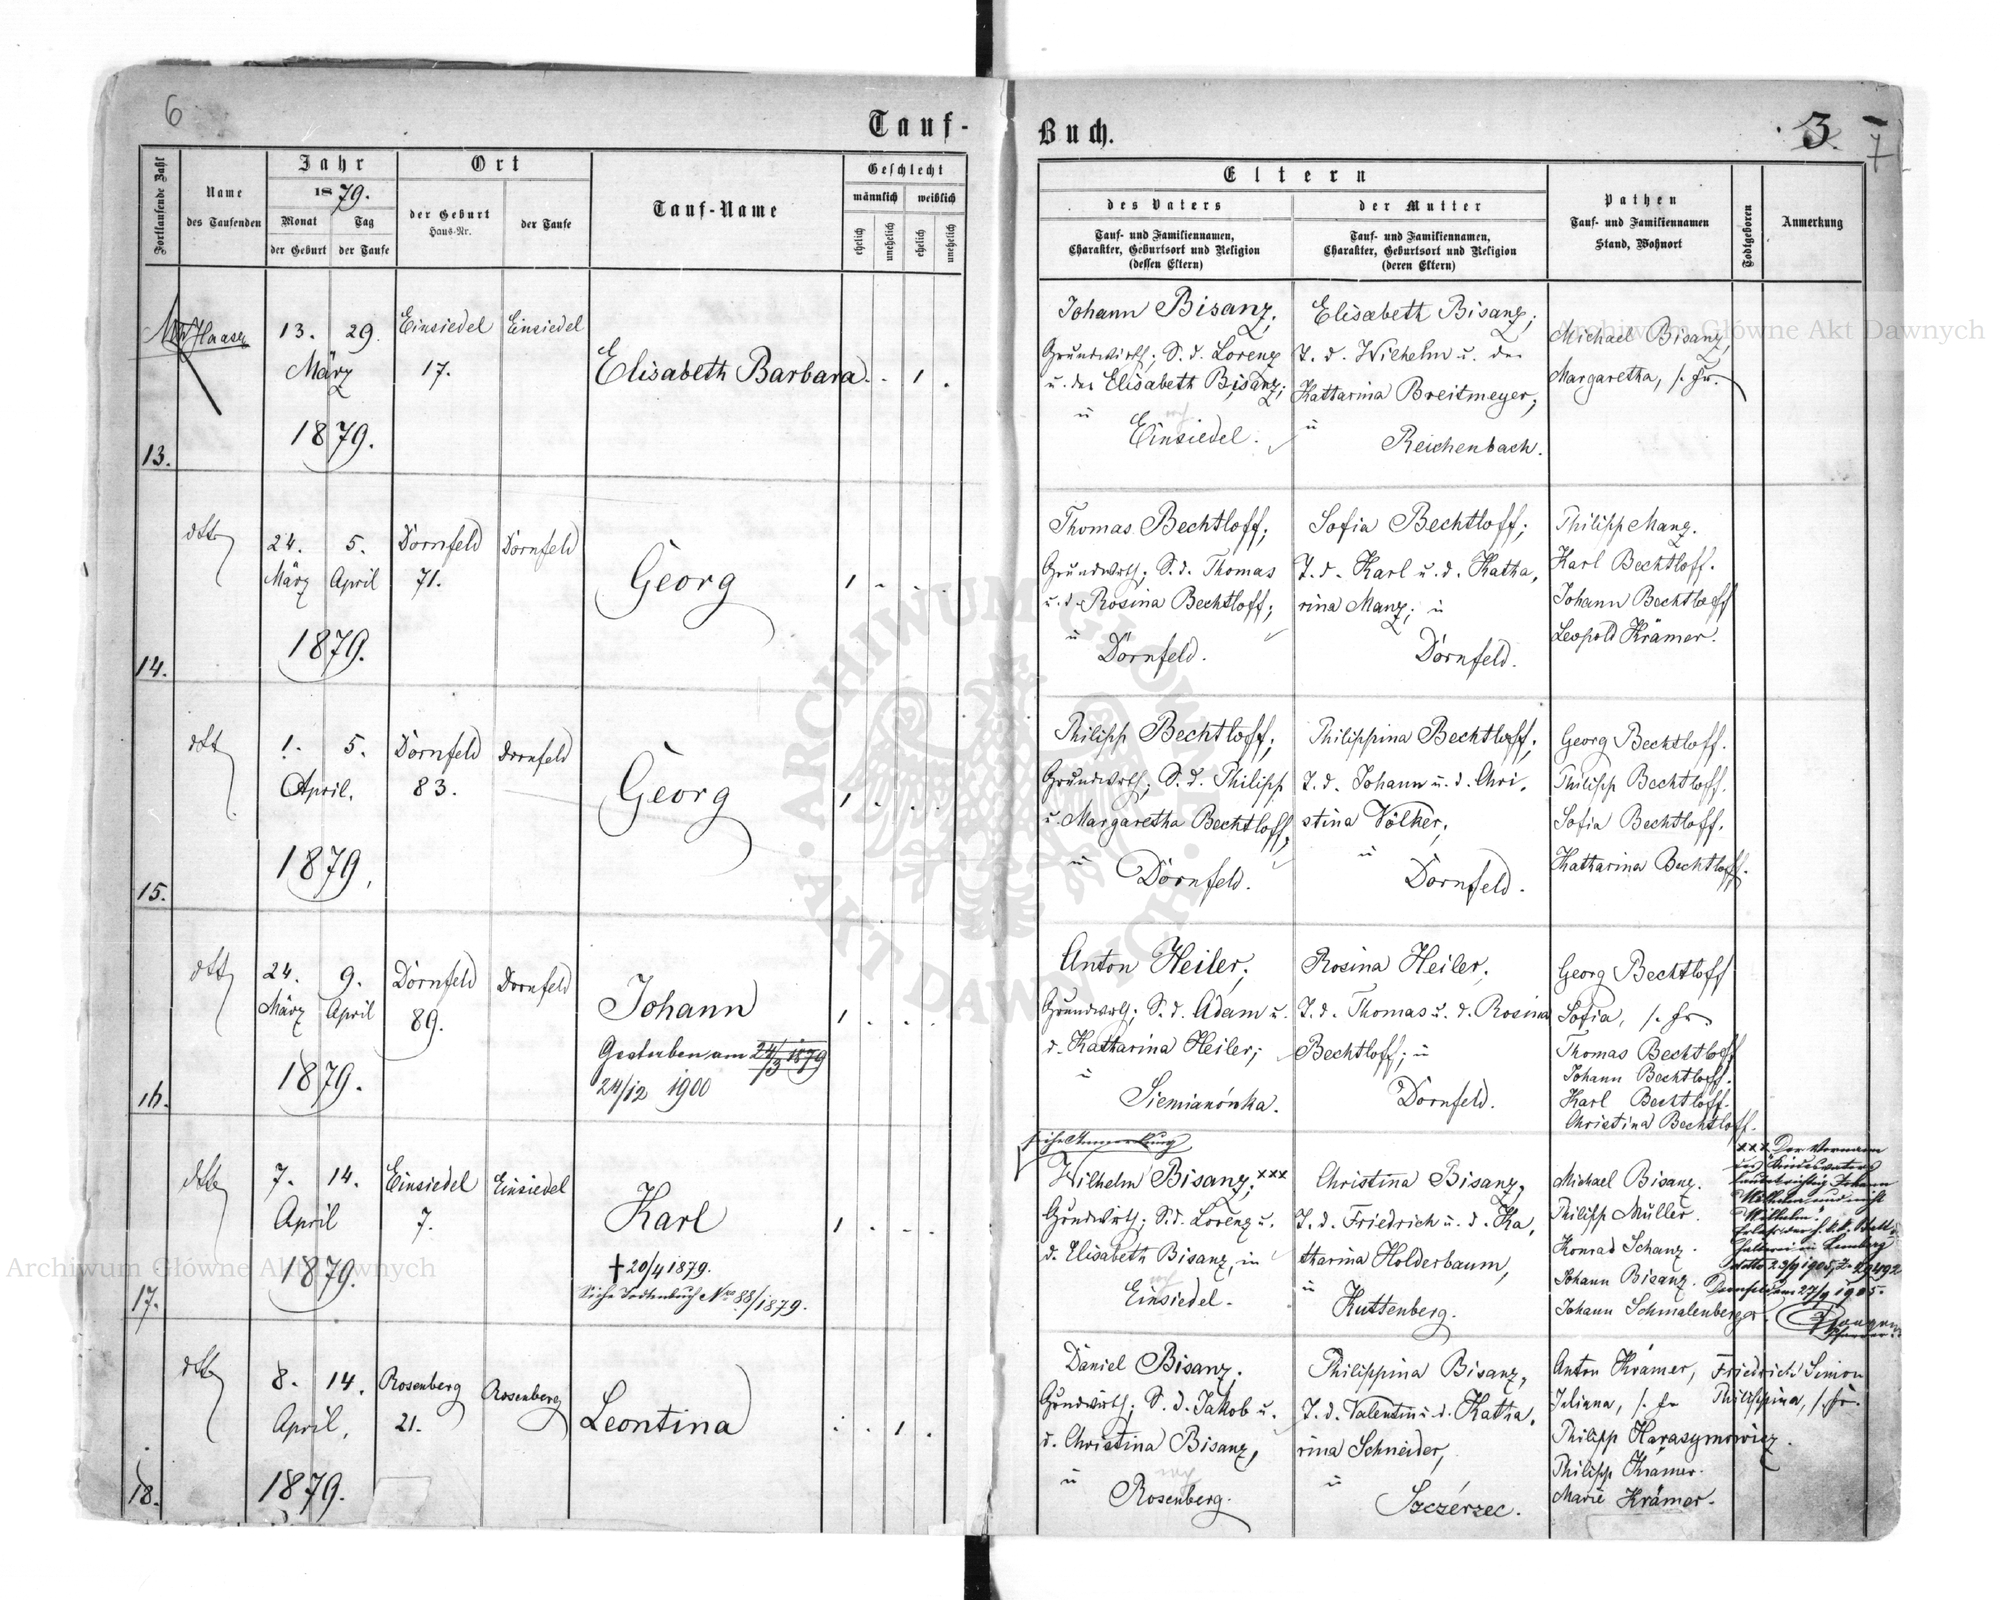 6
Tauf-
Fortlaufende Zahl
Name
des Taufenden
Jahr
1879.
Monat
der Geburt
Tag
der Taufe
Ort
der Geburt
Haus-Nr.
der Taufe
Tauf-Name
Geschlecht
männlich
weiblich
ehelich
unehelich
ehelich
unehelich
Buch.
3.
7
Eltern
des Vaters
Tauf- und Familiennamen,
Charakter, Geburtsort und Religion
(dessen Eltern)
der Mutter
Tauf- und Familiennamen,
Charakter, Geburtsort und Religion
(deren Eltern)
Pathen
Tauf- und Familiennamen
Stand, Wohnort
Todtgeboren
Anmerkung
13.
Haase
13. 29.
März
1879.
Einsiedel
17.
Einsiedel
Elisabeth Barbara
1
Johann Bisanz,
Grundwirth; S. d. Lorenz
u. der Elisabeth Bisanz;
in
Einsiedel.
Elisabeth Bisanz;
T. d. Wilhelm u. der
Katharina Breitmeyer;
in
Reichenbach.
Michael Bisanz,
Margaretha, s. Fr.
14.
dtto
24. 5.
März April
1879.
Dornfeld
71.
Dornfeld
Georg
1
Thomas Bechtloff;
Grundwrth; S. d. Thomas
u. d. Rosina Bechtloff;
in
Dornfeld.
Sofia Bechtloff;
T. d. Karl u. d. Katha,
rina Manz; in
Dornfeld.
Philipp Manz.
Karl Bechtloff.
Johann Bechtloff
Leopold Krämer.
15.
dtto
1. 5.
April.
1879.
Dornfeld
83.
Dornfeld
Georg
1
Philipp Bechtloff;
Grundwrth; S. d. Philipp
u. Margaretha Bechtloff,
in
Dornfeld.
Philippina Bechtloff;
T. d. Johann u. d. Chri,
stina Völker,
in
Dornfeld.
Georg Bechtloff.
Philipp Bechtloff.
Sofia Bechtloff.
Katharina Bechtloff.
16.
dtto
24. 9.
März April
1879.
Dornfeld
89.
Dornfeld
Johann
Gestorben am 24/3 1879
24/12 1900
1
Anton Heiler,
Grundwrth; S. d. Adam u.
d. Katharina Heiler;
in
Siemianówka.
Rosina Heiler,
T. d. Thomas u. d. Rosina
Bechtloff; in
Dornfeld.
Georg Bechtloff
Sofia, s. Fr.
Thomas Bechtloff
Johann Bechtloff.
Karl Bechtloff.
Christina Bechtloff.
17.
dtto
7. 14.
April
1879.
Einsiedel
7.
Einsiedel
Karl
† 20/4 1879.
Siehe Todtenbuch Nro 88/1879.
1
siehe Anmerkung
Wilhelm Bisanz, xxx
Grundwirth; S. d. Lorenz u.
d. Elisabeth Bisanz, in
Einsiedel.
Christina Bisanz,
T. d. Friedrich u. d. Ka,
tharina Holderbaum,
in
Kuttenberg.
Michael Bisanz.
Philipp Müller.
Konrad Schanz.
Johann Bisanz.
Johann Schmalenberger.
xxx Der Vorname
des Kindesvaters
lautet richtig Johann
Wilhelm und nicht
"Wilhelm".
Lemberg
dtto 23/9 1905, Z. 29492
Dornfeld am 27/9 1905.
Pfarrer.
18.
dtto
8. 14.
April,
1879.
Rosenberg
21.
Rosenberg
Leontina
1
Daniel Bisanz.
Grundwirth; S. d. Jakob u.
d. Christina Bisanz,
in
Rosenberg.
Philippina Bisanz,
T. d. Valentin u. d. Katha,
rina Schneider,
in
Szczérzec.
Anton Krämer, Friedrich Simon
Juliana, s. Fr. Philippina, s. Fr.
Philipp Harasymowicz.
Philipp Krämer.
Marie Krämer.
Archiwum Główne Akt Dawnych
ARCHIWUM GŁÓWNE · AKT DAWNYCH ·
Archiwum Główne Akt Dawnych